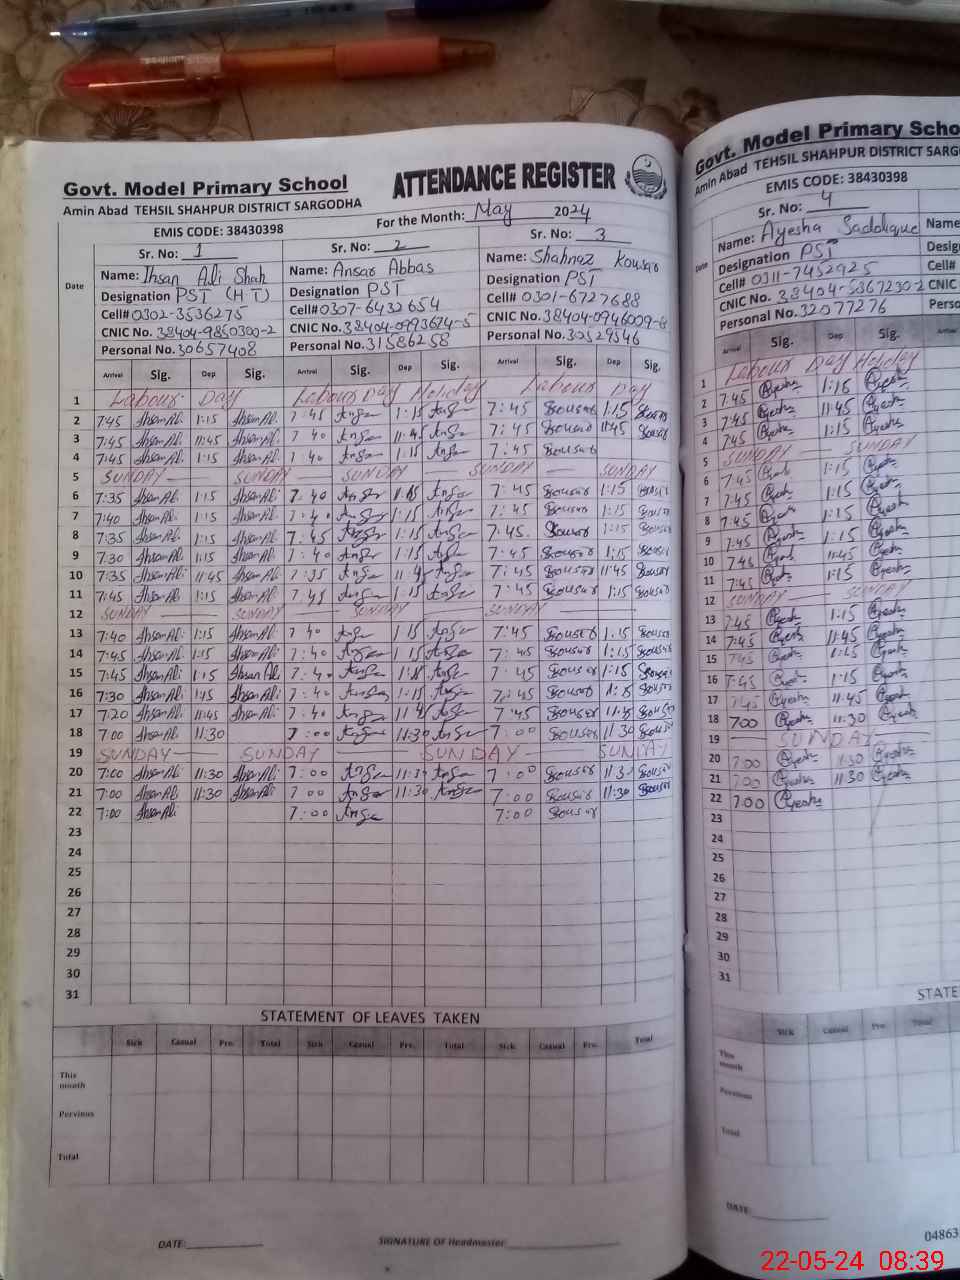 Govt. Model Primary School
ATTENDANCE REGISTER
Amin Abad TEHSIL SHAHPUR DISTRICT SARGODHA
EMIS CODE: 38430398
For the Month: May 2024
Sr. No: 1 Sr. No: 2 Sr. No: 3
Date
Name: Ihsan Ali Shah Name: Ansar Abbas Name: Shahnaz Kousar
Designation PST (HT) Designation PST Designation PST
Cell# 0302-3536275 Cell# 0307-6432654 Cell# 0301-6727688
CNIC No. 38404-9850300-2 CNIC No. 38404-0993674-5 CNIC No. 38404-0946009-8
Personal No. 30657408 Personal No. 31586258 Personal No. 30529546
Arrival Sig. Dep Sig. Arrival Sig. Dep Sig. Arrival Sig. Dep Sig.
1 Labour Day Labour Day Holiday Labour Day
2 7:45 Ihsan Ali 1:15 Ihsan Ali 7:45 Ansar 1:15 Ansar 7:45 Kousar 1:15 Kousar
3 7:45 Ihsan Ali 11:45 Ihsan Ali 7 40 Ansar 11:45 Ansar 7:45 Kousar 11:45 Kousar
4 7:45 Ihsan Ali 1:15 Ihsan Ali 7:40 Ansar 1:15 Ansar 7:45 Kousar
5 SUNDAY SUNDAY SUNDAY SUNDAY SUNDAY
6 7:35 Ihsan Ali 1:15 Ihsan Ali 7:40 Ansar 1:15 Ansar 7:45 Kousar 1:15 Kousar
7 7:40 Ihsan Ali 1:15 Ihsan Ali 7:40 Ansar 1:15 Ansar 7:45 Kousar 1:15 Kousar
8 7:35 Ihsan Ali 1:15 Ihsan Ali 7:45 Ansar 1:15 Ansar 7:45 Kousar 1:15 Kousar
9 7:30 Ihsan Ali 1:15 Ihsan Ali 7:40 Ansar 1:15 Ansar 7:45 Kousar 1:15 Kousar
10 7:35 Ihsan Ali 11:45 Ihsan Ali 7:35 Ansar 11:45 Ansar 7:45 Kousar 11:45 Kousar
11 7:45 Ihsan Ali 1:15 Ihsan Ali 7:45 Ansar 1:15 Ansar 7:45 Kousar 1:15 Kousar
12 SUNDAY SUNDAY SUNDAY SUNDAY
13 7:40 Ihsan Ali 1:15 Ihsan Ali 7 40 Ansar 1 15 Ansar 7:45 Kousar 1:15 Kousar
14 7:45 Ihsan Ali 1:15 Ihsan Ali 7:40 Ansar 1 15 Ansar 7:45 Kousar 1:15 Kousar
15 7:45 Ihsan Ali 1:15 Ihsan Ali 7:40 Ansar 1:15 Ansar 7:45 Kousar 1:15 Kousar
16 7:30 Ihsan Ali 1:15 Ihsan Ali 7:40 Ansar 1:15 Ansar 7:45 Kousar 1:15 Kousar
17 7:20 Ihsan Ali 11:45 Ihsan Ali 7:40 Ansar 11:45 Ansar 7:45 Kousar 11:45 Kousar
18 7:00 Ihsan Ali 11:30 7:00 Ansar 11:30 Ansar 7:00 Kousar 11:30 Kousar
19 SUNDAY SUNDAY SUNDAY SUNDAY
20 7:00 Ihsan Ali 11:30 Ihsan Ali 7:00 Ansar 11:30 Ansar 7:00 Kousar 11:30 Kousar
21 7:00 Ihsan Ali 11:30 Ihsan Ali 7 00 Ansar 11:30 Ansar 7:00 Kousar 11:30 Kousar
22 7:00 Ihsan Ali 7:00 Ansar 7:00 Kousar
23
24
25
26
27
28
29
30
31
STATEMENT OF LEAVES TAKEN
Sick Casual Pre. Total Sick Casual Pre. Total Sick Casual Pre. Total
This month
Pervious
Total
DATE: SIGNATURE OF Headmaster
Govt. Model Primary Scho
Amin Abad TEHSIL SHAHPUR DISTRICT SARG
EMIS CODE: 38430398
Sr. No: 4
Date
Name: Ayesha Saddique Name:
Designation PST Desig
Cell# 0311-7452925 Cell#
CNIC No. 38404-5367230-2 CNIC
Personal No. 32077276 Perso
Arrival Sig. Dep Sig. Arrival
1 Labour Day Holiday
2 7:45 Ayesha 1:15 Ayesha
3 7:45 Ayesha 11:45 Ayesha
4 7:45 Ayesha 1:15 Ayesha
5 SUNDAY SUNDAY
6 7:45 Ayesha 1:15 Ayesha
7 7:45 Ayesha 1:15 Ayesha
8 7:45 Ayesha 1:15 Ayesha
9 7:45 Ayesha 1:15 Ayesha
10 7:45 Ayesha 11:45 Ayesha
11 7:45 Ayesha 1:15 Ayesha
12 SUNDAY SUNDAY
13 7:45 Ayesha 1:15 Ayesha
14 7:45 Ayesha 11:45 Ayesha
15 7:45 Ayesha 1:15 Ayesha
16 7:45 Ayesha 1:15 Ayesha
17 7:45 Ayesha 11:45 Ayesha
18 7:00 Ayesha 11:30 Ayesha
19 SUNDAY
20 7:00 Ayesha 11:30 Ayesha
21 7:00 Ayesha 11:30 Ayesha
22 7:00 Ayesha
23
24
25
26
27
28
29
30
31
STATE
Sick Casual Pre. Total
This month
Pervious
Total
DATE:
04863
22-05-24 08:39